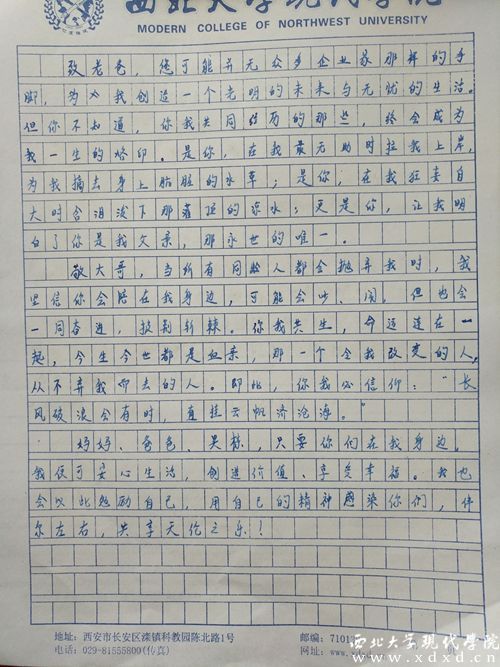 西北大学现代学院
MODERN COLLEGE OF NORTHWEST UNIVERSITY
致老爸，您可能并无众多企业家那样的手
脚，为我创造一个光明的未来与无忧的生活。
但你不知道，你我共同经历的那些，终会成为
我一生的烙印。是你，在我最无助时拉我上岸，
为我摘去身上肮脏的水草；是你，在我狂妄自
大时含泪泼下那落顶的凉水；更是你，让我明
白了你是我父亲，那永世的唯一。
敬大哥，当所有同龄人都会抛弃我时，我
坚信你会陪在我身边，可能会吵、闹，但也会
一同奋进，披荆斩棘。你我共生，命运连在一
起，今生今世都是血亲，那一个令我改变的人，
从不弃我而去的人。即此，你我必信仰：“长
风破浪会有时，直挂云帆济沧海。”
妈妈、爸爸、吴栋，只要你们在我身边，
我便可安心生活，创造价值、享受幸福。我也
会以此勉励自己，用自己的精神感染你们，伴
尔左右，共享天伦之乐！
地址：西安市长安区滦镇科教园陈北路1号
邮编：7101
电话：029-81555800(传真)
网址：
西北大学现代学院
www.xdxd.cn